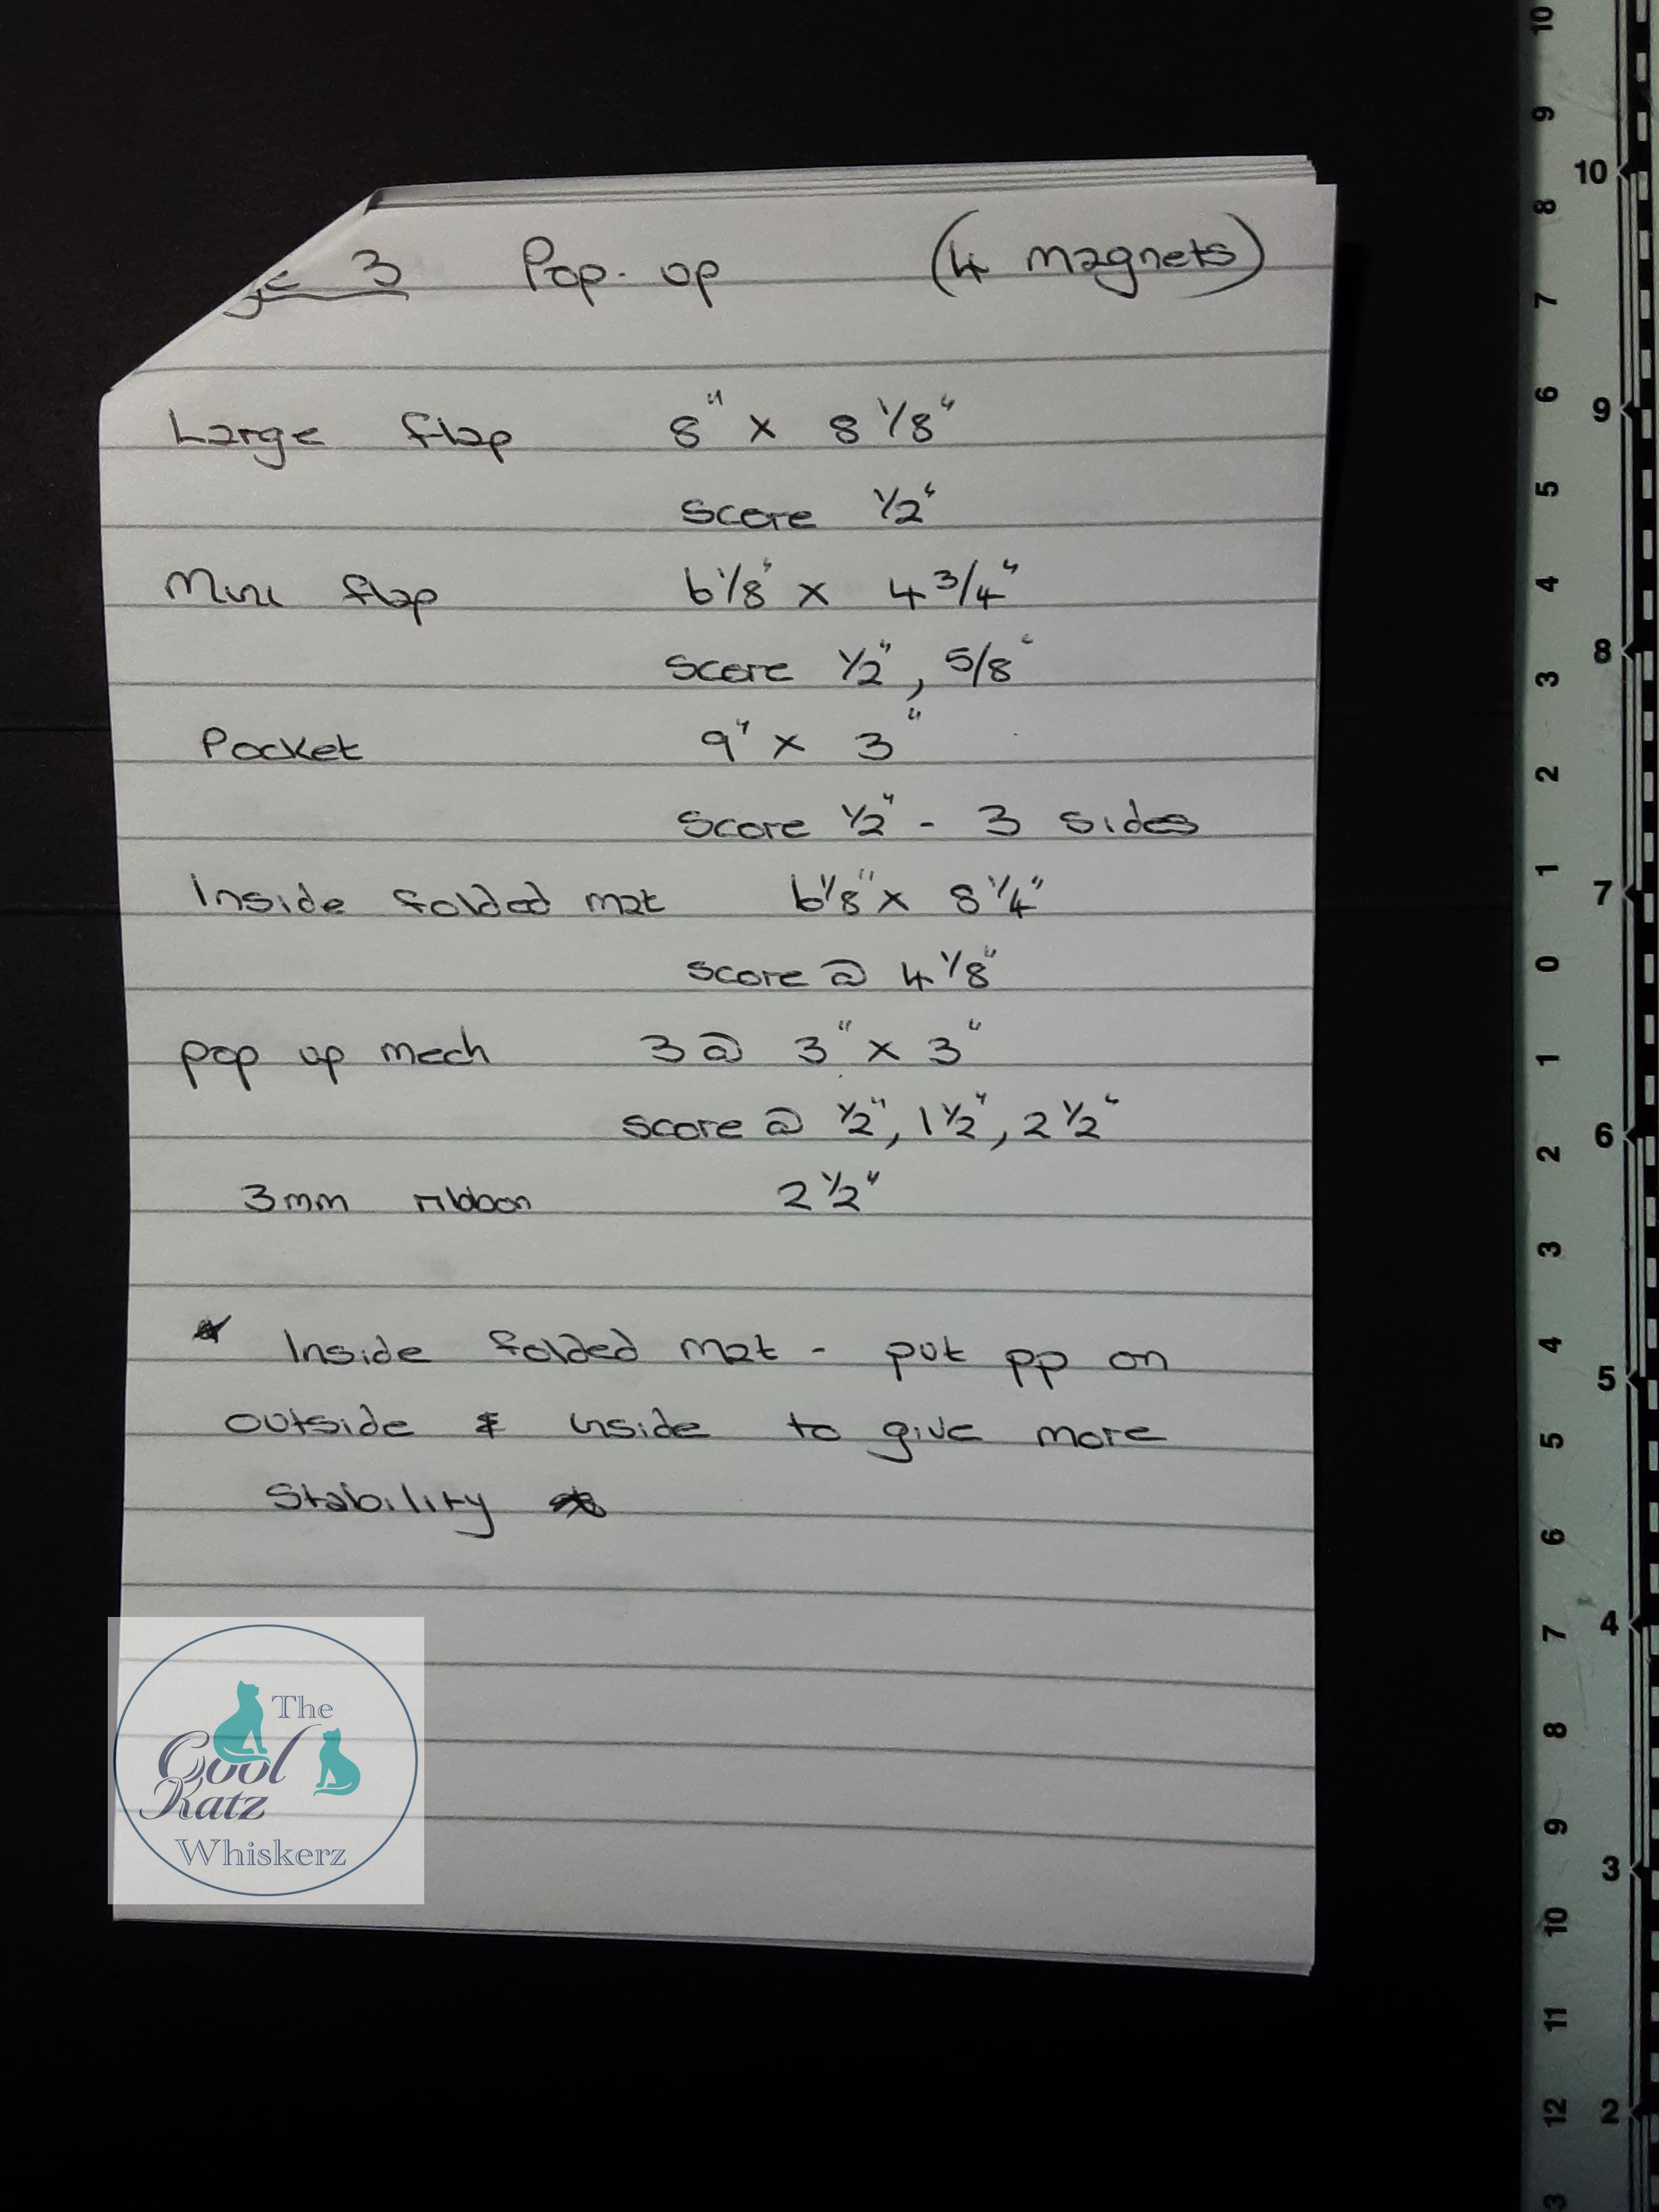 3 Pop-up (4 magnets)
Large flap 8" x 8 1/8"
Score 1/2"
Mini flap 6 1/8" x 4 3/4"
Score 1/2", 5/8"
Pocket 9" x 3"
Score 1/2" - 3 sides
Inside folded mat 6 1/8" x 8 1/4"
score @ 4 1/8"
pop up mech 3 @ 3" x 3"
score @ 1/2", 1 1/2", 2 1/2"
3mm ribbon 2 1/2"
* Inside folded mat - put pp on
outside & inside to give more
Stability *
The
Cool
Katz
Whiskerz
10
9
8
7
6
5
4
3
2
1
0
1
2
3
4
5
6
7
8
9
10
11
12
10
9
8
7
6
5
4
3
2